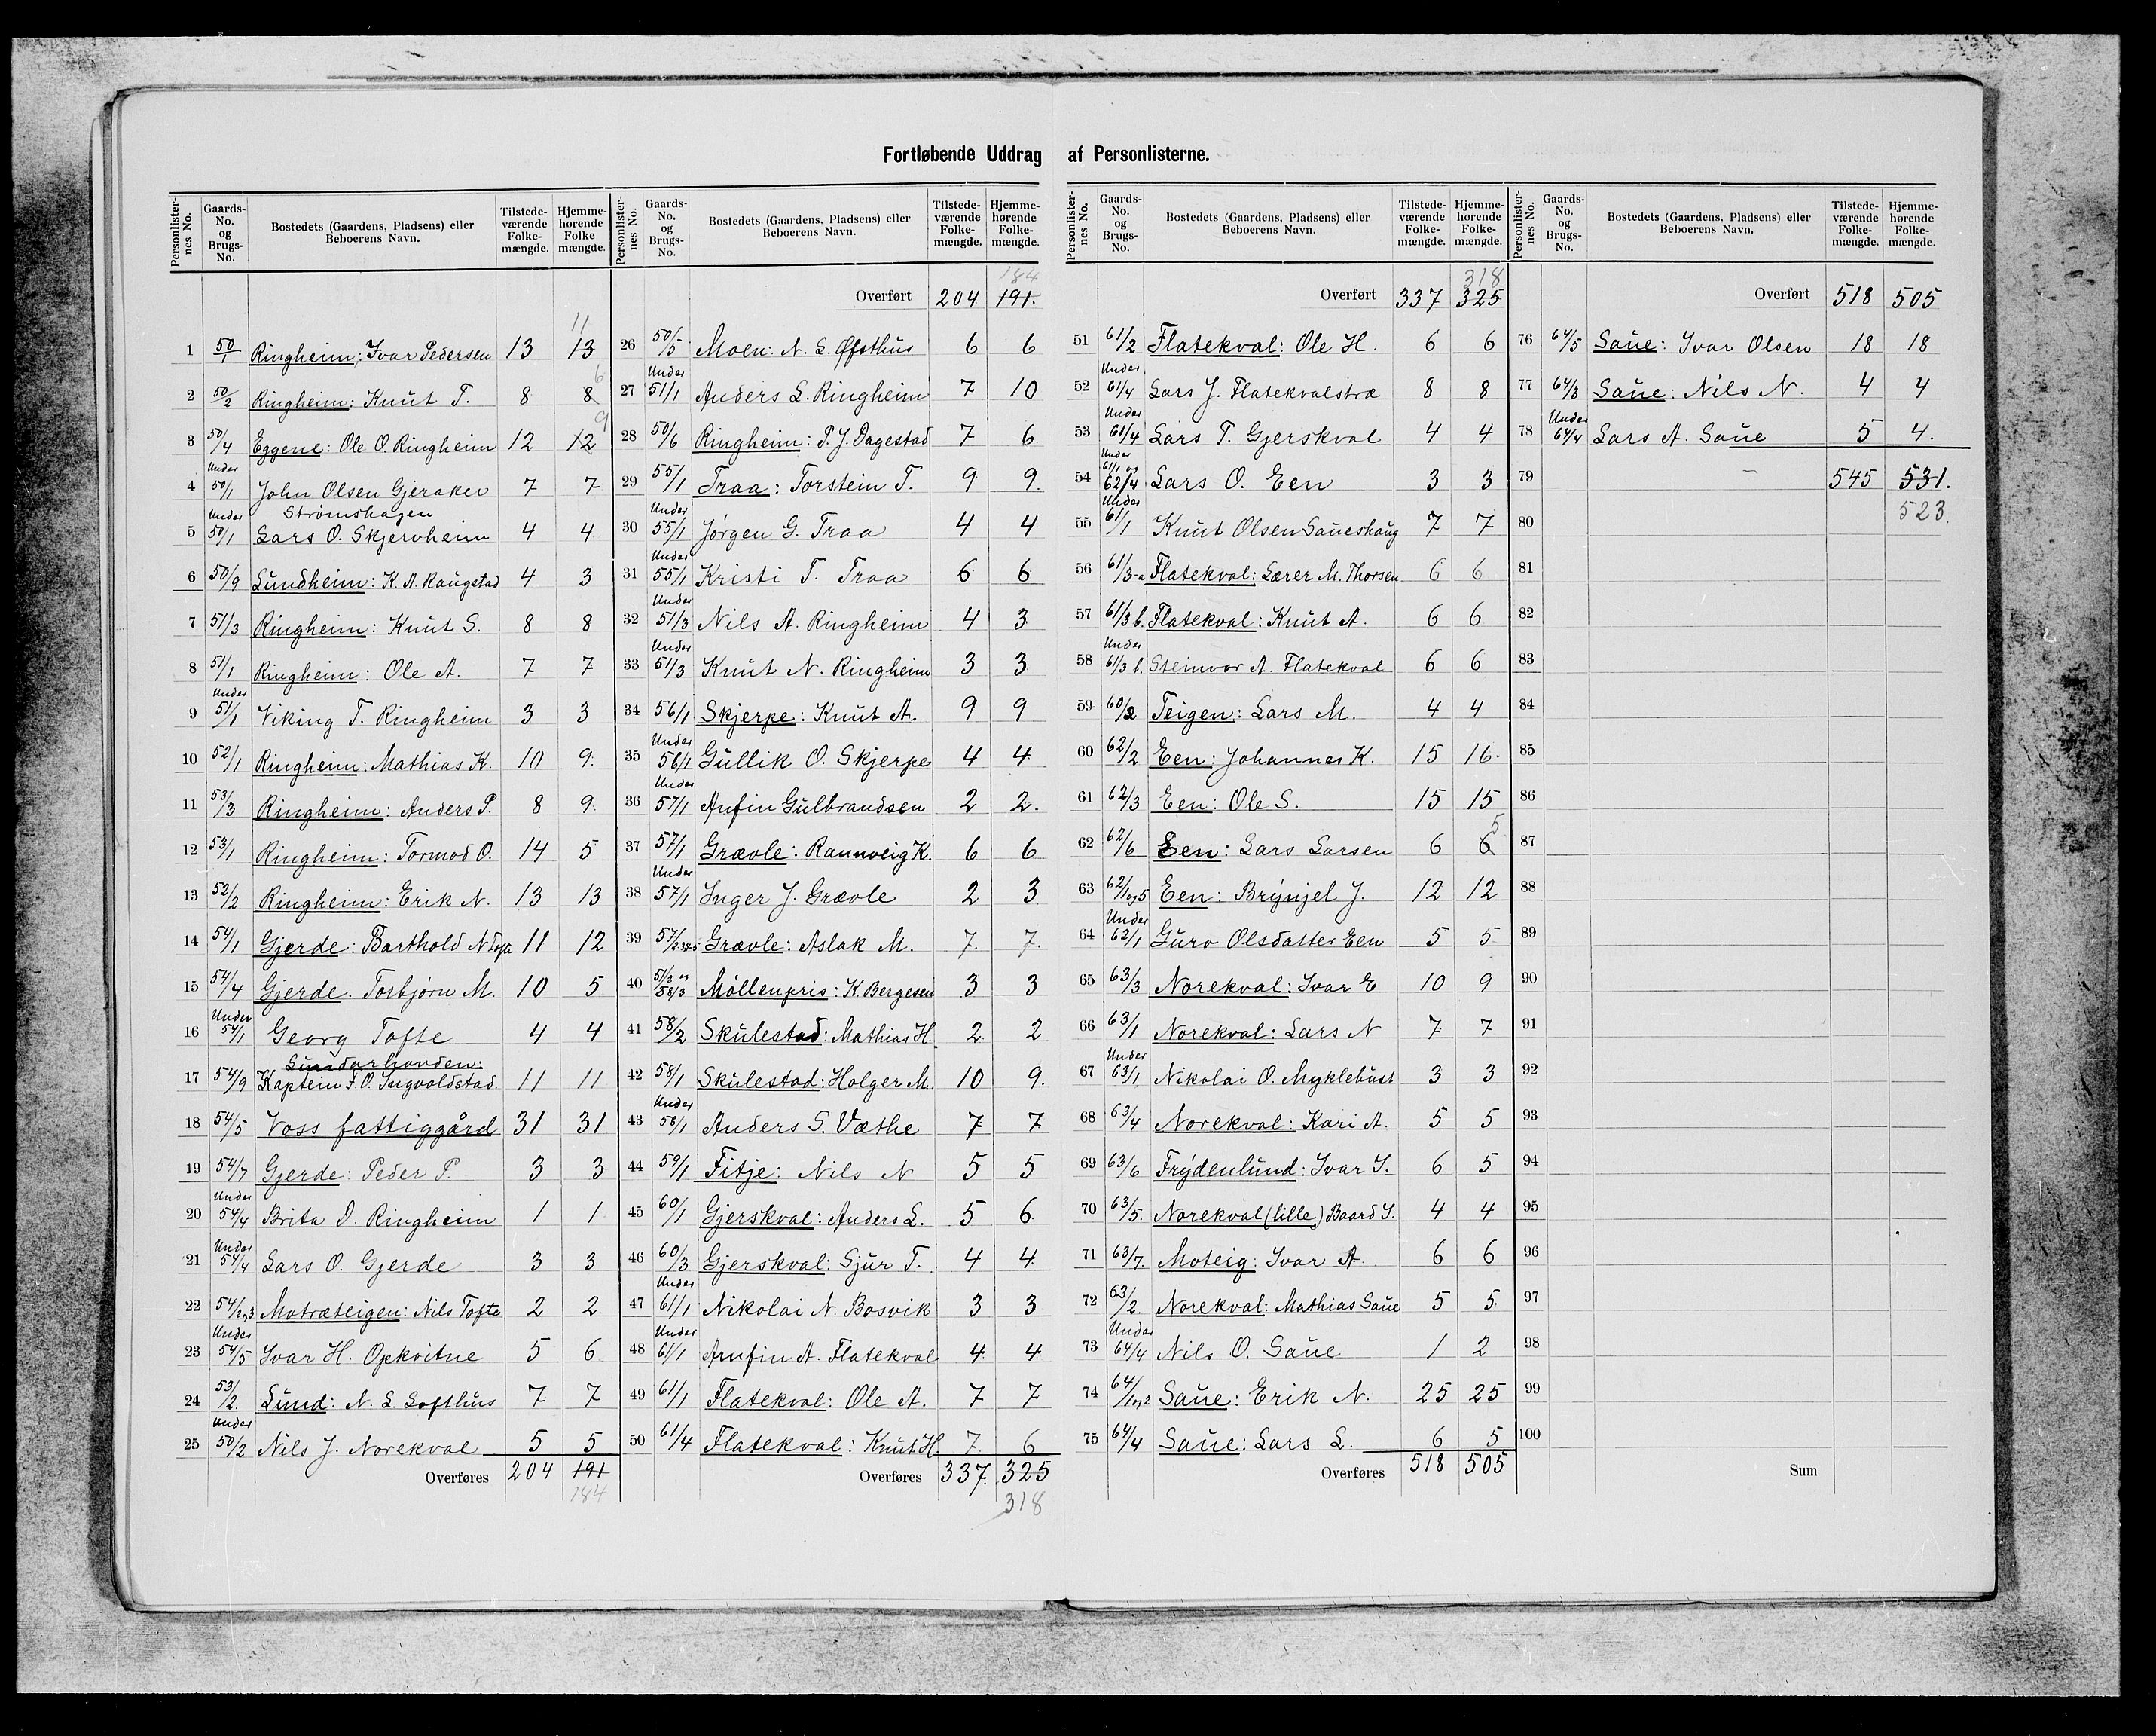 Fortløbende Uddrag af Personlisterne.
Personlister-nes No. Gaards-No. og Brugs-No. Bostedets (Gaardens, Pladsens) eller Beboerens Navn. Tilstede-værende Folke-mængde. Hjemme-hørende Folke mængde.
1 50/1 Ringheim: Ivar Pedersen 13 13 11
2 50/2 Ringheim: Knut T. 8 8 6
3 50/4 Eggene: Ole O. Ringheim 12 12 9
4 Under 50/1 John Olsen Gjeraker 7 7
Strømshagen
5 Under 50/1 Lars O. Skjervheim 4 4
6 50/9 Lundheim: K. A. Raugstad 4 3
7 51/3 Ringheim: Knut S. 8 8
8 51/1 Ringheim: Ole A. 7 7
9 Under 51/1 Viking T. Ringheim 3 3
10 52/1 Ringheim: Mathias K. 10 9.
11 53/3 Ringheim: Anders P. 8 9.
12 53/1 Ringheim: Tormod O. 14 5
13 52/2 Ringheim: Erik N. 13 13
14 54/1 Gjerde: Barthold N. 11 12
15 54/4 Gjerde. Torbjørn M. 10 5
16 Under 54/1 Georg Tofte 4 4
17 54/9 Kaptein F. O. Ingvoldstad. 11 11
18 54/5 Voss fattiggård 31 31
19 54/7 Gjerde: Peder P. 3 3
20 Under 54/4 Brita D. Ringheim 1 1
21 Under 54/4 Lars O. Gjerde 3 3
22 54/2og3 Motræteigen: Nils Tofte 2 2
23 Under 54/5 Ivar H. Opkvitne 5 6
24 53/2. Lund: N. L. Lofthus 7 7
25 Under 50/2 Nils J. Norekval 5 5
Overføres 204 191
184
Personlister-nes No. Gaards-No. og Brugs-No. Bostedets (Gaardens, Pladsens) eller Beboerens Navn. Tilstede-værende Folke-mængde. Hjemme-hørende Folke-mængde.
184
Overført 204 191.
26 50/5 Moen: N. L. Øfsthus 6 6
27 Under 51/1 Anders L. Ringheim 7 10
28 50/6 Ringheim: P. J. Dagestad 7 6
29 55/1 Traa: Torstein T. 9 9.
30 Under 55/1 Jørgen G. Traa 4 4
31 Under 55/1 Kristi T. Traa 6 6
32 Under 51/3 Nils A. Ringheim 4 3
33 Under 51/3 Knut N. Ringheim 3 3
34 56/1 Skjerpe: Knut A. 9 9
35 Under 56/1 Gullik O. Skjerpe 4 4
36 Under 57/1 Anfin Gulbrandsen 2 2.
37 57/1 Grævle: Rannveig K. 6 6
38 Under 57/1 Inger J. Grævle 2 3
39 Grævle: Aslak M. 7. 7.
40 Möllenpris: K. Bergesen 3 3
41 58/2 Skulestad: Mathias H. 2 2
42 58/1 Skulestad: Holger M. 10 9.
43 Under 58/1 Anders S. Væthe 7 7
44 59/1 Fitje: Nils N 5 5
45 60/1 Gjerskval: Anders L. 5 6
46 60/3 Gjerskval: Sjur T. 4 4
47 Under 61/1 Nikolai N. Bosvik 3 3
48 Under 61/1 Anfin A. Flatekval 4 4
49 61/1 Flatekval: Ole A. 7 7
50 61/4 Flatekval: Knut H. 7 6
Overføres 337. 325
318
Personlister-nes No. Gaards-No. og Brugs-No. Bostedets (Gaardens, Pladsens) eller Beboerens Navn. Tilstede-værende Folke-mængde. Hjemme-hørende Folke-mængde.
318
Overført 337 325
51 61/2 Flatekval: Ole H. 6 6
52 Under 61/4 Lars J. Flatekvalstræ 8 8
53 Under 61/4 Lars T. Gjerskval 4 4
54 Under 61/1 og 62/4 Lars O. Een 3 3
55 Under 61/1 Knut Olsen Saueshaug 7 7
56 61/3-a Flatekval: Lærer M. Thorsen 6 6
57 61/3 b. Flatekval: Knut A. 6 6
58 Under 61/3 b. Steinvor A. Flatekval 6 6
59 60/2 Teigen: Lars M. 4 4
60 62/2 Een: Johannes K. 15 16.
61 62/3 Een: Ole S. 15 15
62 62/6 Een: Lars Larsen 6 6 5
63 62/1og5 Een: Brynjel J. 12 12
64 Under 62/1 Guro Olsdatter Een 5 5
65 63/3 Norekval: Ivar E 10 9
66 63/1 Norekval: Lars N 7 7
67 Under 63/1 Nikolai O. Myklebust 3 3
68 63/4 Norekval: Kari A. 5 5
69 63/6 Frydenlund: Ivar I. 6 5
70 63/5. Norekval (lille) Baard I. 4 4
71 63/7. Moteig: Ivar A. 6 6
72 63/2. Norekval: Mathias Saue 5 5
73 Under 64/4 Nils O. Saue 1 2
74 64/1og2 Saue: Erik N. 25 25
75 64/4 Saue: Lars L. 6 5
Overføres 518 505
Personlister-nes No. Gaards-No. og Brugs-No. Bostedets (Gaardens, Pladsens) eller Beboerens Navn. Tilstede-værende Folke-mængde. Hjemme-hørende Folke-mængde.
Overført 518 505
76 64/5 Saue: Ivar Olsen 18 18
77 64/3 Saue: Nils N. 4 4
78 Under 64/4 Lars A. Saue 5 4.
79 545 531.
80 523.
81
82
83
84
85
86
87
88
89
90
91
92
93
94
95
96
97
98
99
100
Sum